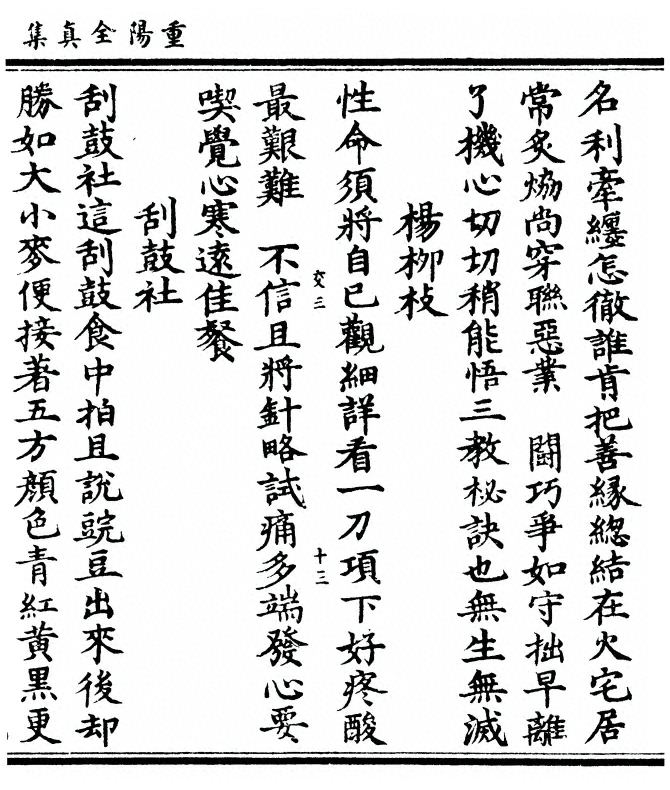 重陽全真集
名利牽纏怎徹誰肯把善緣緫結在火宅居
常炙煿尚穿聯惡業　鬬巧爭如守拙早離
了機心切切稍能悟三教秘訣也無生無滅
楊柳枝
性命須將自己觀細詳看一刀項下好疼酸
交三
十三
最艱難　不信且將針略試痛多端發心要
喫覺心寒遠佳餐
刮鼓社
刮鼓社這刮鼓食中拍且說豌豆出來後却
勝如大小麥便接著五方顏色青紅黃黑更